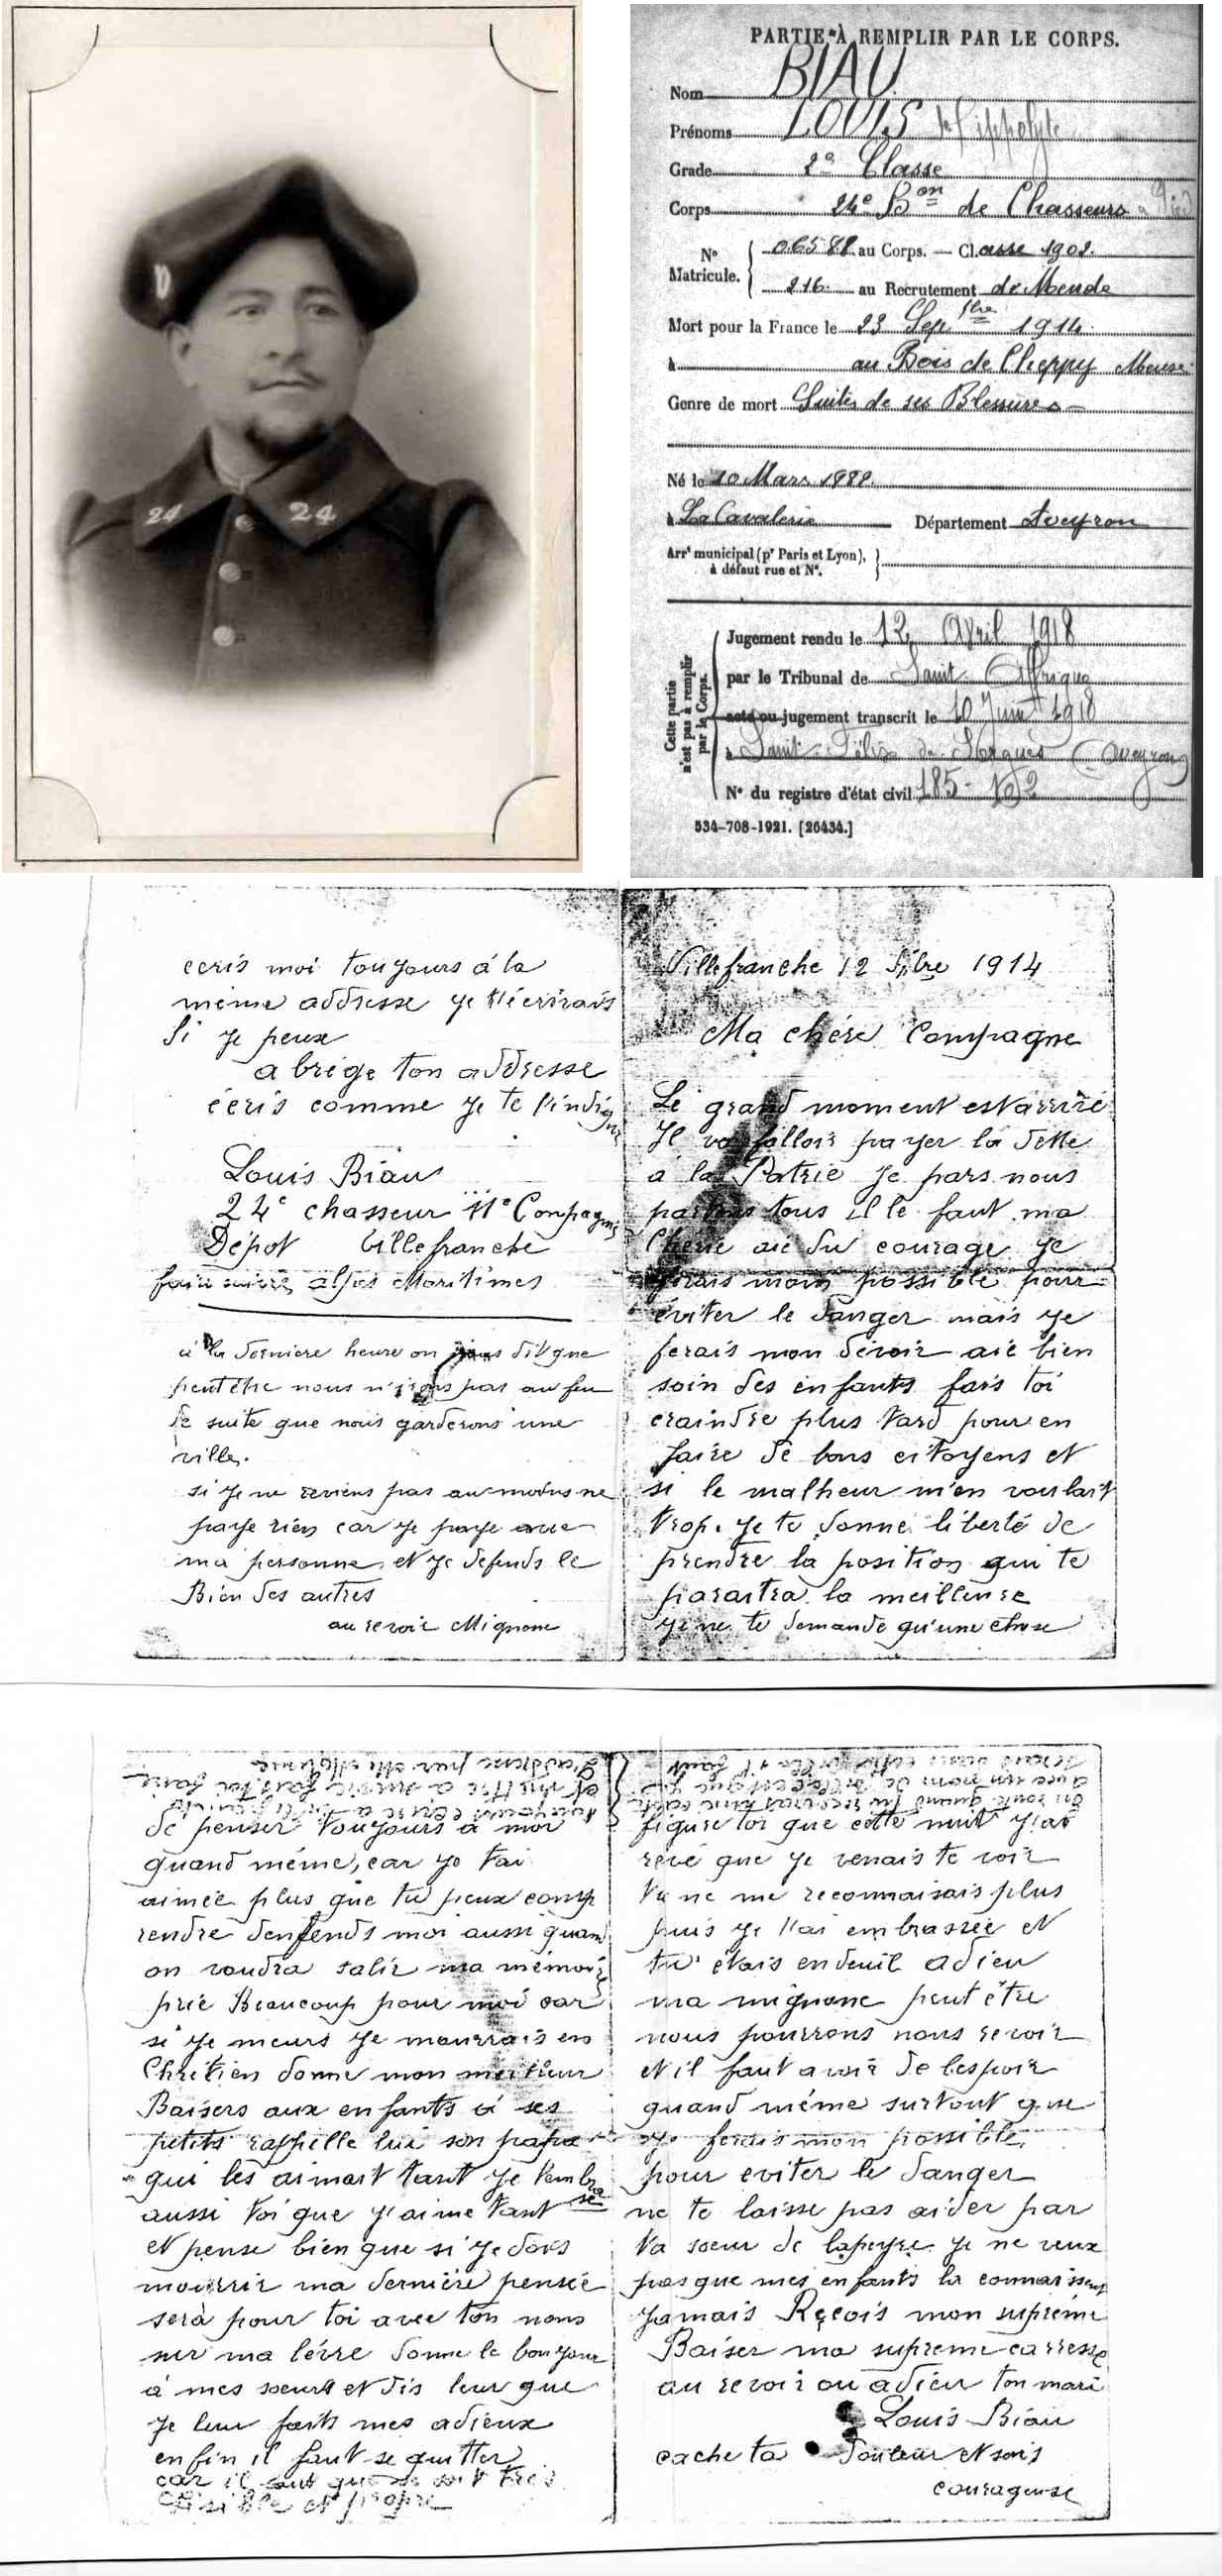 24
24
PARTIE À REMPLIR PAR LE CORPS.
Nom BIAU
Prénoms LOUIS Hippolyte
Grade 2e Classe
Corps 24e Bon de Chasseurs à Pied
N° Matricule. 06588 au Corps. — Classe 1908.
216 au Recrutement de Mende
Mort pour la France le 23 Septbre 1914
à au Bois de Cheppy Meuse
Genre de mort Suites de ses Blessures
Né le 10 Mars 1888
à La Cavalerie Département Aveyron
Arrt municipal (pr Paris et Lyon),
à défaut rue et N°.
Cette partie
n'est pas à remplir
par le Corps.
Jugement rendu le 12 Avril 1918
par le Tribunal de Saint Affrique
acte ou jugement transcrit le 10 Juin 1918
à Saint-Félix de Sorgues (Aveyron)
N° du registre d'état civil 185-
534-708-1921. [26434.]
ecris moi touyours á la
méme addresse ye t'écrirais
Si ye peux
abrége ton addresse
écris comme ye te l'indique
Louis Biau
24e chasseur 11e Compagnie
Dépot Villefranche
faire suivre alpes Maritimes
a la derniere heure on dit que
peut étre nous n'irons pas au feu
de suite que nous garderons une
ville.
si ye ne reviens pas au moins ne
paye rien car ye paye avec
ma personne et ye defends le
Bien des autres
au revoir Mignone
Villefranche 12 1914
Ma chére Compagne
Le grand moment est arrivé
Il va falloir payer la dette
a la Patrie Je pars nous
partons tous il le faut ma
Chérie aie du courage ye
ferais mon possible pour
éviter le danger mais ye
ferais mon devoir aie bien
soin des enfants fais toi
craindre plus tard pour en
faire de bons citoyens et
si le malheur m'en voulait
trop. ye te donne liberté de
prendre la position qui te
paraitra la meilleure
ye ne te demande qu'une chose
de penser touyours a moi
quand méme, car ye t'ai
aimée plus que tu peux comp
rendre denfends moi aussi quand
on voudra salir ma mémoire
prie Beaucoup pour moi car
si ye meurs ye mourrais en
Chrétien donne mon meilleur
Baisers aux enfants á ses
petits rappelle lui son papa
qui les aimait tant ye t'embrasse
aussi toi que y'aime tant
et pense bien que si ye dois
mourrir ma derniére pensée
sera pour toi avec ton nom
sur ma lévre donne le bonyour
á mes soeurs et dis leur que
ye leur faits mes adieux
enfin il faut se quitter
car il
figure toi que cette nuit y'ai
révé que ye venais te voir
tu ne me reconnaisais plus
puis ye t'ai embrassée et
tu étais en deuil adieu
ma mignone peut étre
nous pourrons nous revoir
et il faut avoir de lespoir
quand méme surtout que
ye ferais mon possible
pour eviter le danger
ne te laisse pas aider par
ta soeur de lapeyre ye ne veux
pas que mes enfants la connaissent
yamais Reçois mon supréme
Baiser ma supreme carresse
au revoir ou adieu ton mari
Louis Biau
cache ta douleur et sois
courageuse